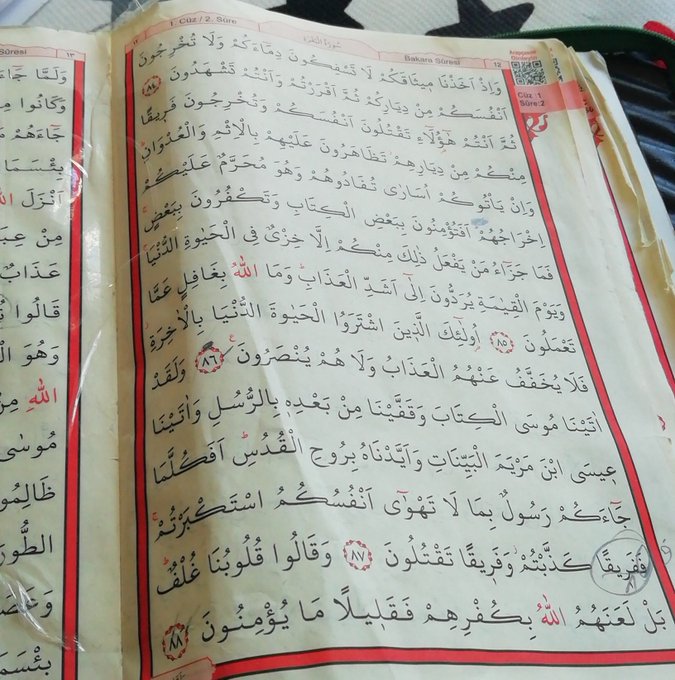 ١١ 1. Cüz / 2. Sûre سُورَةُ الْبَقَرَةِ Bakara Sûresi 12
Cüz: 1
Sûre:2
وَاِذْ اَخَذْنَا م۪يثَاقَكُمْ لَا تَسْفِكُونَ دِمَٓاءَكُمْ وَلَا تُخْرِجُونَ
اَنْفُسَكُمْ مِنْ دِيَارِكُمْ ثُمَّ اَقْرَرْتُمْ وَاَنْتُمْ تَشْهَدُونَ ٨٤
ثُمَّ اَنْتُمْ هٰٓؤُ۬لَٓاءِ تَقْتُلُونَ اَنْفُسَكُمْ وَتُخْرِجُونَ فَر۪يقًا
مِنْكُمْ مِنْ دِيَارِهِمْۘ تَظَاهَرُونَ عَلَيْهِمْ بِالْاِثْمِ وَالْعُدْوَانِۜ
وَاِنْ يَأْتُوكُمْ اُسَارٰى تُفَادُوهُمْ وَهُوَ مُحَرَّمٌ عَلَيْكُمْ
اِخْرَاجُهُمْۜ اَفَتُؤْمِنُونَ بِبَعْضِ الْكِتَابِ وَتَكْفُرُونَ بِبَعْضٍۚ
فَمَا جَزَٓاءُ مَنْ يَفْعَلُ ذٰلِكَ مِنْكُمْ اِلَّا خِزْيٌ فِي الْحَيٰوةِ الدُّنْيَاۚ
وَيَوْمَ الْقِيٰمَةِ يُرَدُّونَ اِلٰٓى اَشَدِّ الْعَذَابِۜ وَمَا اللّٰهُ بِغَافِلٍ عَمَّا
تَعْمَلُونَ ٨٥ اُو۬لٰٓئِكَ الَّذ۪ينَ اشْتَرَوُا الْحَيٰوةَ الدُّنْيَا بِالْاٰخِرَةِۘ
فَلَا يُخَفَّفُ عَنْهُمُ الْعَذَابُ وَلَا هُمْ يُنْصَرُونَ۟ ٨٦ وَلَقَدْ
اٰتَيْنَا مُوسَى الْكِتَابَ وَقَفَّيْنَا مِنْ بَعْدِه۪ بِالرُّسُلِ وَاٰتَيْنَا
ع۪يسَى ابْنَ مَرْيَمَ الْبَيِّنَاتِ وَاَيَّدْنَاهُ بِرُوحِ الْقُدُسِۜ اَفَكُلَّمَا
جَٓاءَكُمْ رَسُولٌ بِمَا لَا تَهْوٰٓى اَنْفُسُكُمُ اسْتَكْبَرْتُمْۚ
فَفَر۪يقًا كَذَّبْتُمْۘ وَفَر۪يقًا تَقْتُلُونَ ٨٧ وَقَالُوا قُلُوبُنَا غُلْفٌۜ
بَلْ لَعَنَهُمُ اللّٰهُ بِكُفْرِهِمْ فَقَل۪يلًا مَا يُؤْمِنُونَ ٨٨
Sûresi ١٣
وَلَمَّا جَٓاءَ
وَكَانُوا
جَٓاءَهُمْ
بِئْسَمَا
اَنْزَلَ
مِنْ
عَذَابٌ
قَالُوا
وَهُوَ
اللّٰهِ مِنْ
مُوسٰى